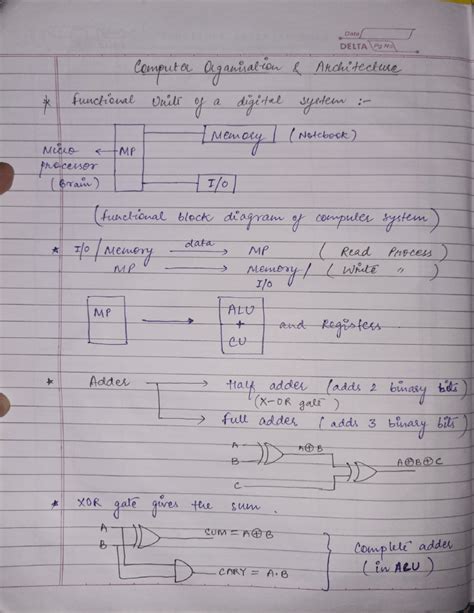 Date
DELTA Pg No
Computer Organisation & Architecture
* Functional Units of a digital system :-
Memory (Notebook)
Micro processor (Brain) ← MP
I/O
(functional block diagram of computer system)
* I/O / Memory data → MP (Read Process)
MP → Memory / I/O (Write ")
MP → ALU + CU and Registers
* Adder → Half adder (adds 2 binary bits)
(X-OR gate)
→ Full adder (adds 3 binary bits)
A
B
A⊕B
A⊕B⊕C
C
* XOR gate gives the sum.
A
B
CUM = A⊕B
CARY = A·B
Complete adder
(in ALU)